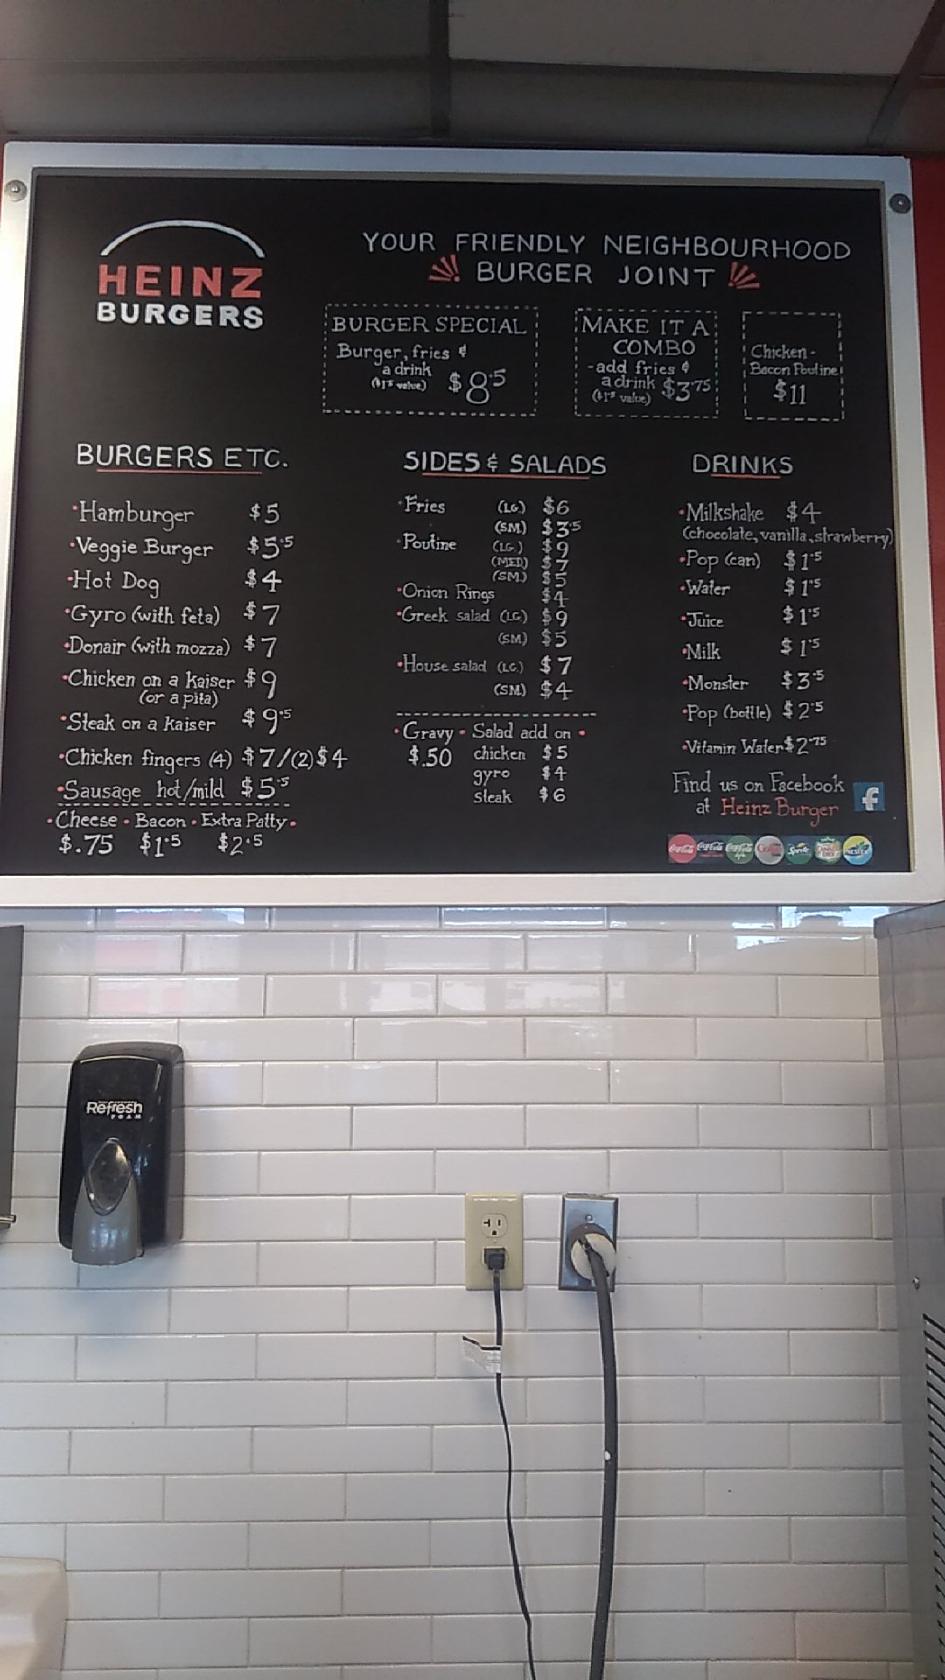 HEINZ
BURGERS
YOUR FRIENDLY NEIGHBOURHOOD
BURGER JOINT
BURGER SPECIAL
Burger, fries &
a drink
($1.5 value) $8.5
MAKE IT A
COMBO
-add fries &
a drink $3.75
($1.5 value)
Chicken-
Bacon Poutine
$11
BURGERS ETC.
•Hamburger $5
•Veggie Burger $5.5
•Hot Dog $4
•Gyro (with feta) $7
•Donair (with mozza) $7
•Chicken on a Kaiser $9
(or a pita)
•Steak on a kaiser $9.5
•Chicken fingers (4) $7/(2)$4
•Sausage hot/mild $5.5
•Cheese • Bacon • Extra Patty•
$.75 $1.5 $2.5
SIDES & SALADS
•Fries (LG) $6
(SM) $3.5
•Poutine (LG.) $9
(MED) $7
(SM) $5
•Onion Rings $4
•Greek salad (LG) $9
(SM) $5
•House salad (LG.) $7
(SM) $4
•Gravy • Salad add on •
$.50 chicken $5
gyro $4
steak $6
DRINKS
•Milkshake $4
(chocolate, vanilla, strawberry)
•Pop (can) $1.5
•Water $1.5
•Juice $1.5
•Milk $1.5
•Monster $3.5
•Pop (bottle) $2.5
•Vitamin Water $2.75
Find us on Facebook
at Heinz Burger
f
Coca-Cola Coca-Cola Coca-Cola Sprite
Refresh
FOAM